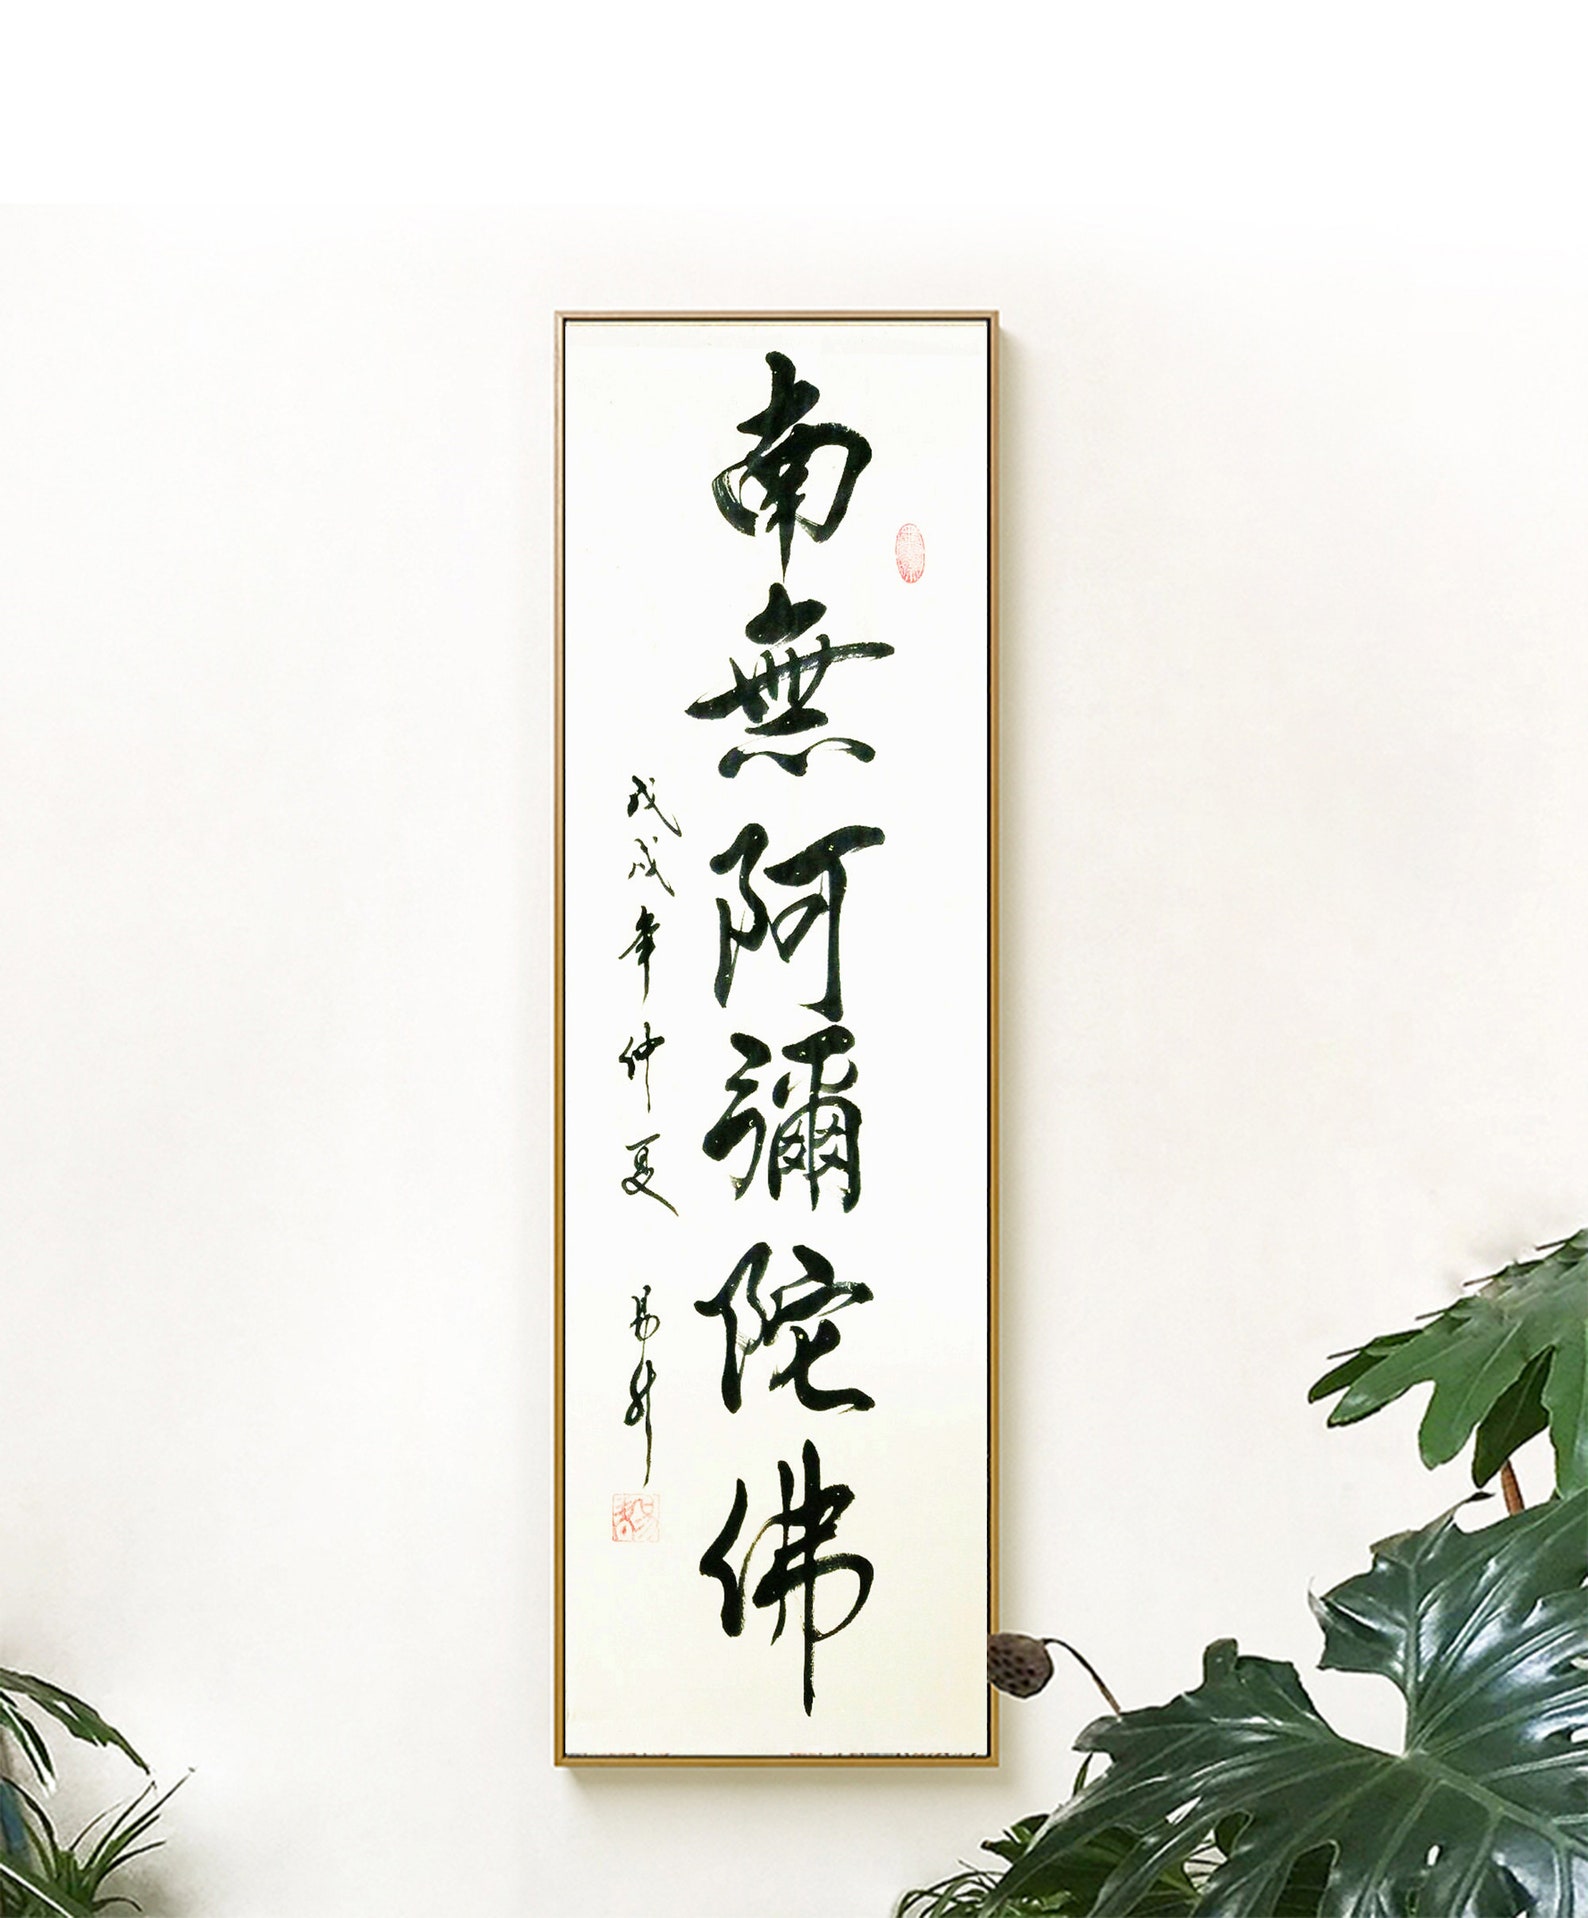 南無阿彌陀佛
戊戌年仲夏 易升